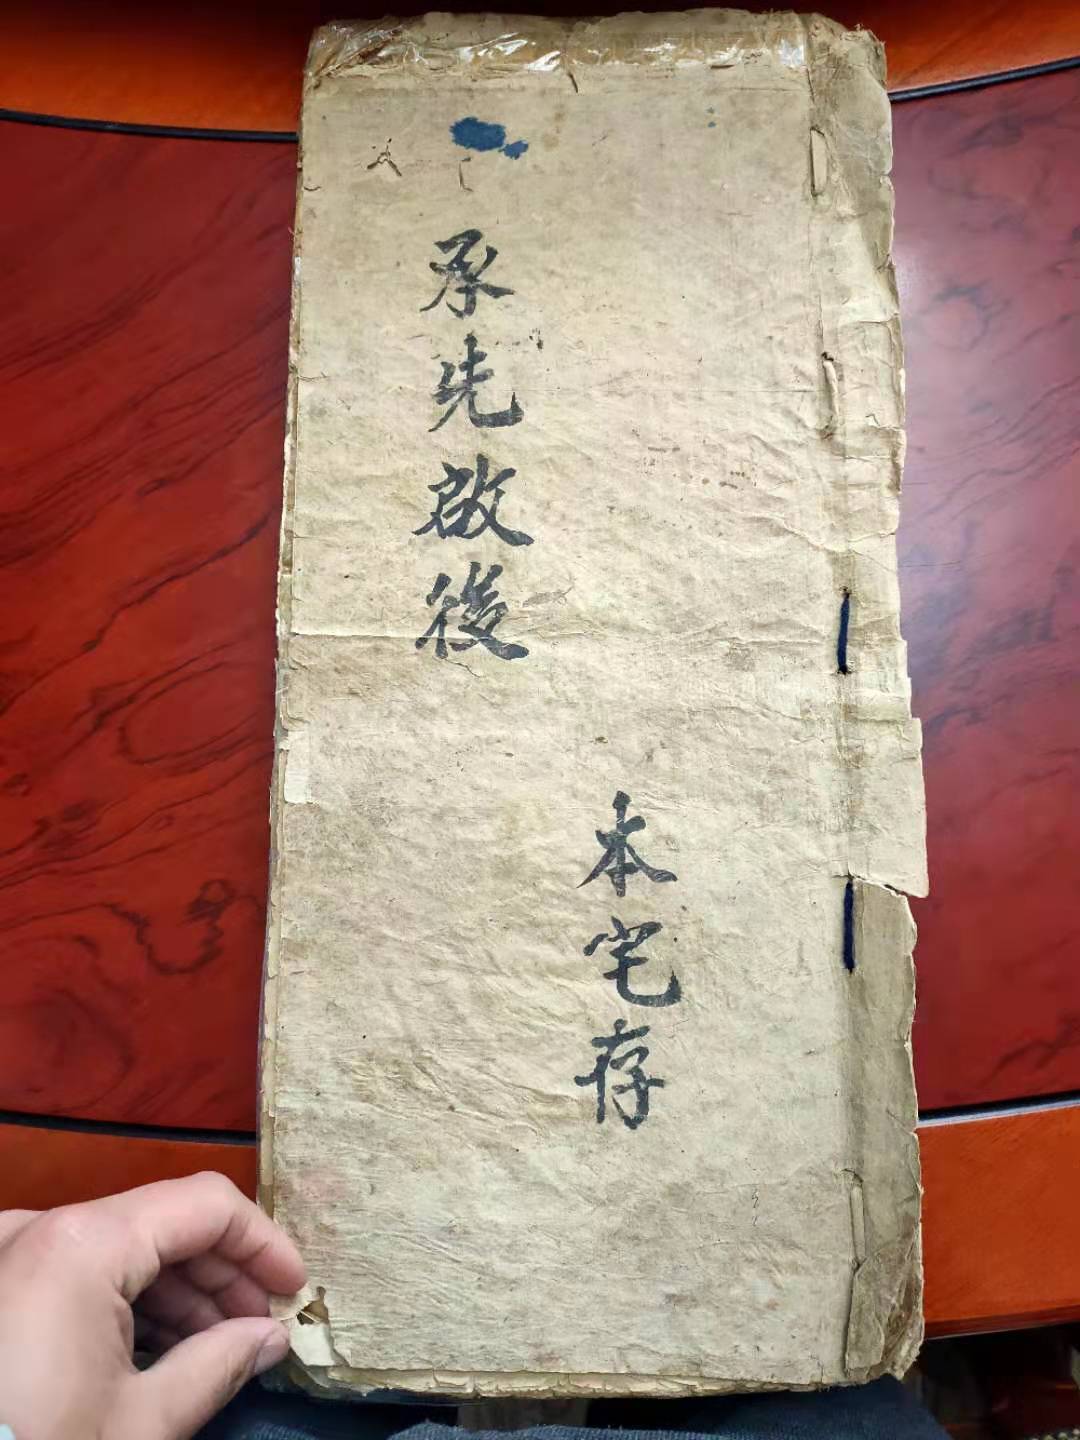 承先啟後
本宅存